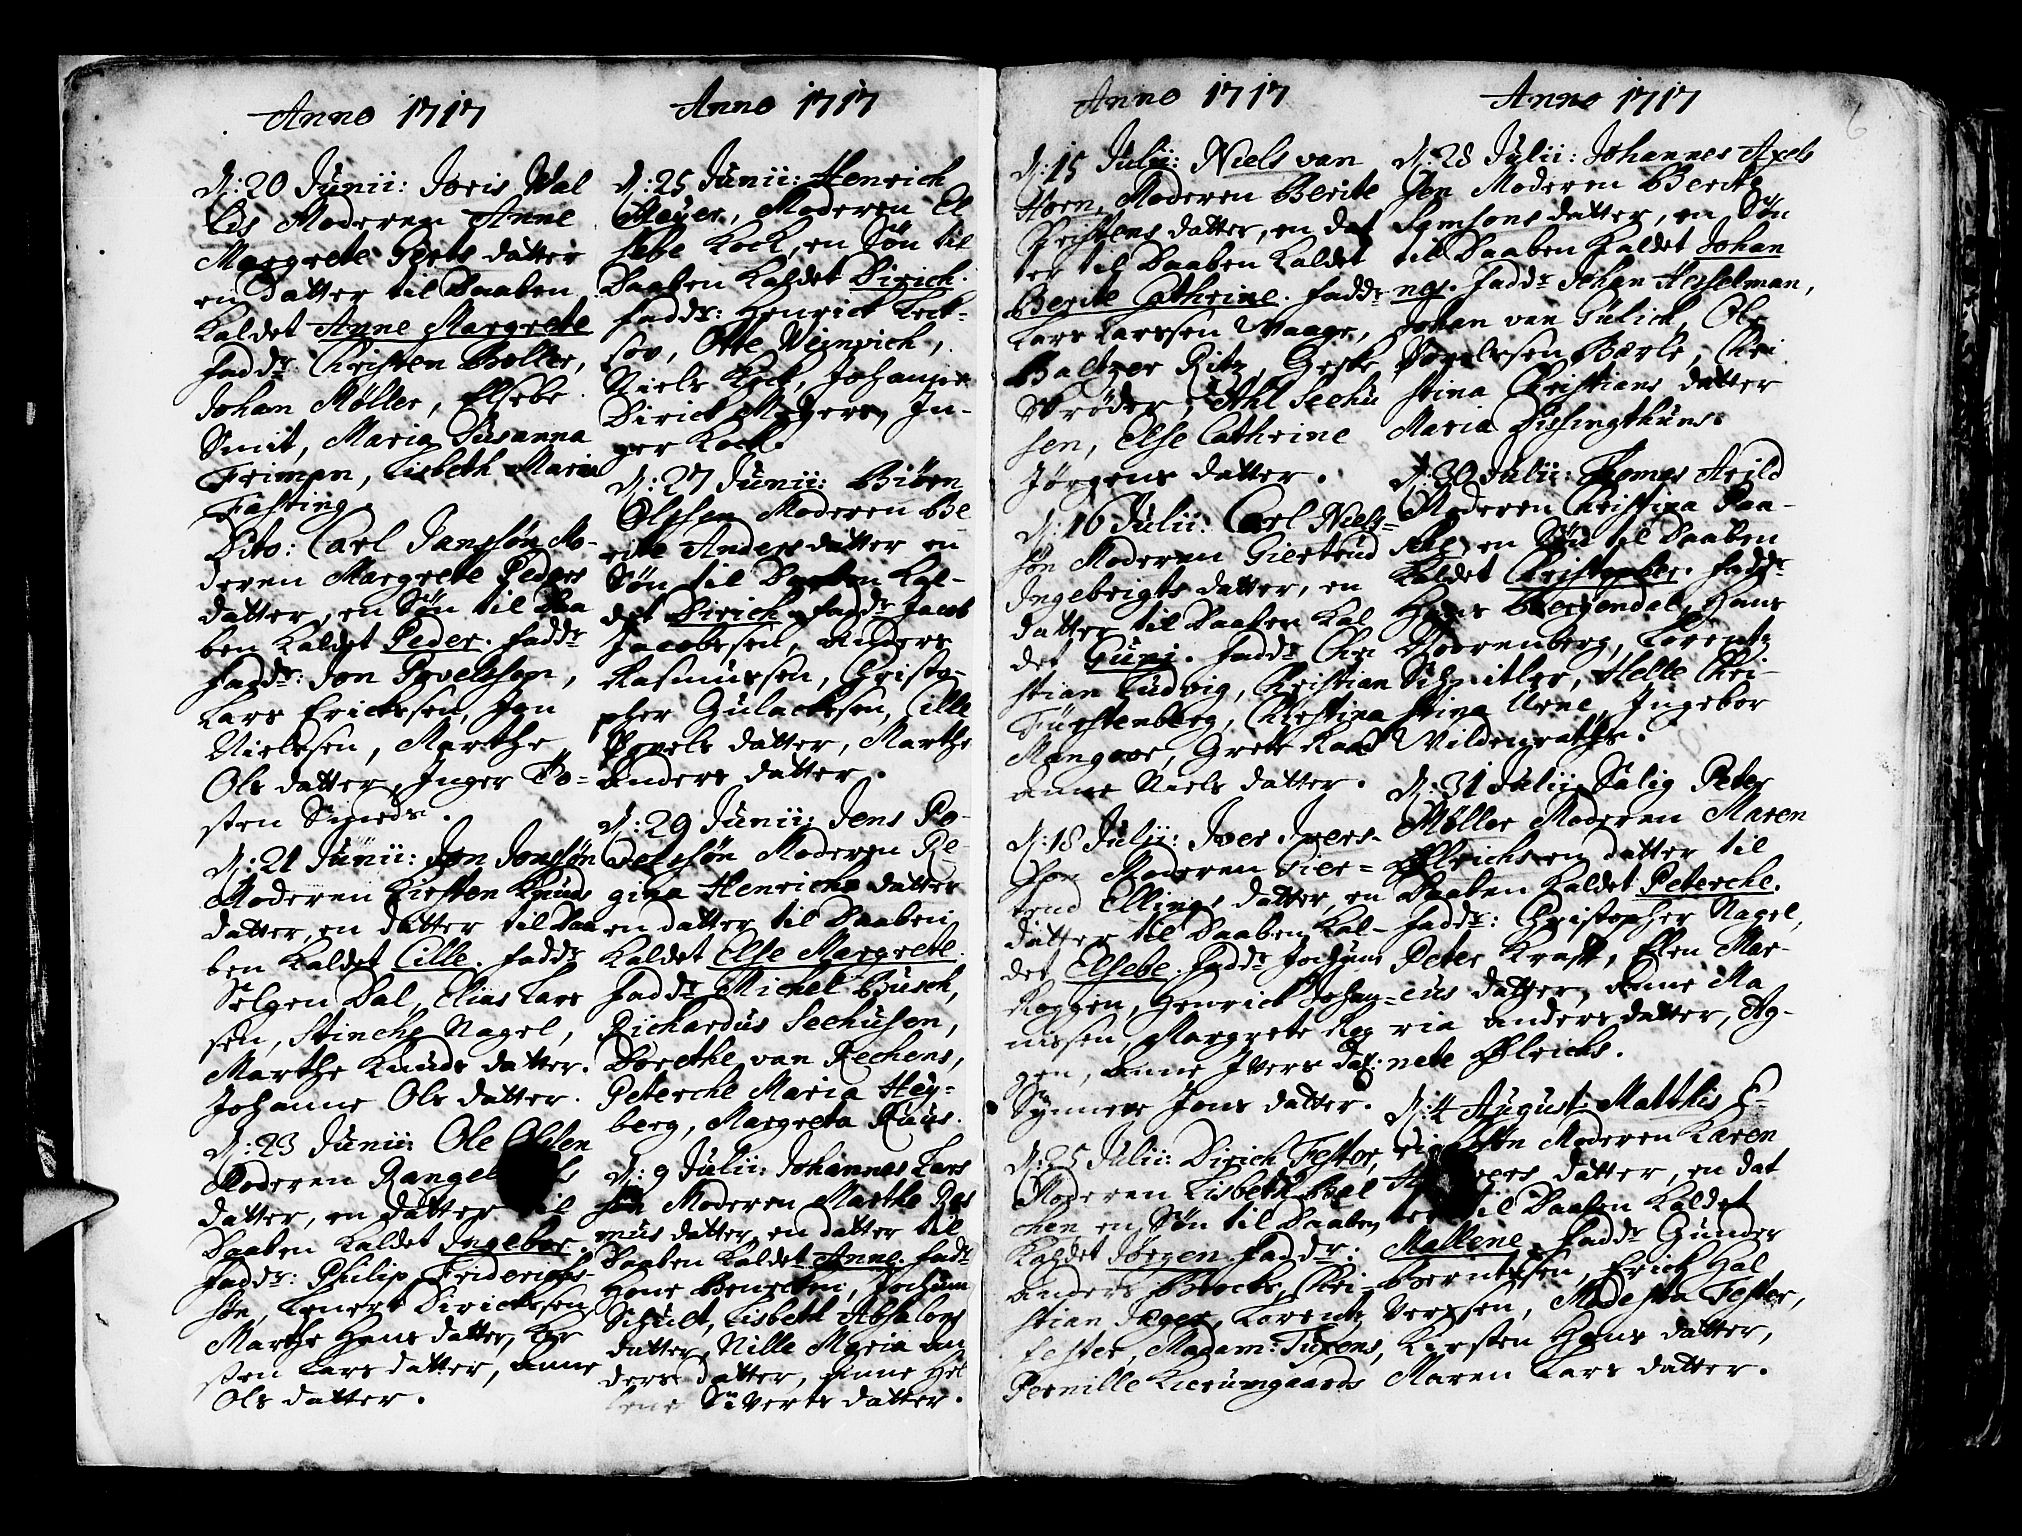 Anno 1717
D: 20 Junii: Joris Wal
lis Moderen Anne
Margrete Gerts datter
en datter til Daaben
Kaldet Anne Margrete
Faddr: Christen Boller,
Johan Møller, Elsebe
Smit, Maria Susanna
Friman, Lisbeth Maria
Fasting.
Dito: Carl Janssøn Mo-
deren Margrete Peders
datter, en Søn til Daa
ben Kaldet Peder. Faddr
Faddr: Jon Povelssen,
Lars Ericksen, Jon
Nielssen, Marthe
Ols datter, Inger To-
sten
D: 21 Junii: Jon Jonssøn
Moderen Kirsten Knuds
datter, en datter til Daa
ben Kaldet Cille. Faddr
Dal, Elias Lars
sen, Stinche Nagel,
Marthe Knuds datter.
Johanne Ols datter.
D: 23 Junii: Ole Olssen
Moderen
datter, en datter til
Daaben Kaldet Ingebor.
Faddr: Philip Friderichs-
søn, Lenert Diricksen
Marthe Hans datter, Kir
sten Lars datter, Anne
Ols datter.
Anno 1717
D: 25 Junii: Henrich
Meyer, Moderen El
sebe Kock, en Søn til
Daaben Kaldet Dirich.
Faddr: Henrick Leck-
sov, Otte Weinvich,
Niels Kock, Johanne
Dirick Meyers, In-
ger Kock.
D: 27 Junii: Biørn
Olssen Moderen Be-
rite Anders datter en
Søn til Daaben Kal-
det Dirich. Faddr Jacob
Jacobssen, Anders
Rasmussen, Christo-
pher Gulacksen, Cille
Povels datter, Marthe
Anders datter.
D: 29 Junii: Jens Po-
velssøn Moderen Re-
gina Henrichs datter
en datter til Daaben
Kaldet Else Margrete.
Faddr Michel Busch,
Richardus Seehusen,
Dorethe van Rechens,
Peterche Maria Hey-
berg, Margreta Ruus.
D: 9 Julii: Johannes Lars
søn Moderen Marthe Ras
mus datter, en datter til
Daaben Kaldet Anne. Faddr
Hans Bentzen, Jochum
Schult, Lisbeth Absalons
datter, Nille Maria An
ders datter, Anne Hel
lene Siverts datter.
Anno 1717
D: 15 Julii: Niels van
Horn, Moderen Berite
Christens datter, en dat
ter til Daaben Kaldet
Berite Cathrine. Faddr
Lars Larssen Waage,
Baltzer Ritz, Geske
Strøder, Ahl Seehu
sen, Else Cathrine
Jørgens datter.
D: 16 Julii: Carl Niels-
søn Moderen Giertrud
Ingebrigts datter, en
datter til Daaben Kal
det Guni. Faddr Chri
stian Ludvig, Christian
Fürstenberg, Christina
Mangoor, Grete Raas
Anne Niels datter.
D: 18 Julii: Iver Ivers-
søn Moderen Sier-
trud Ellings datter, en
datter til Daaben Kal-
det Elsebe. Faddr Jochum
Roggen, Henrick Johan-
nissen, Margrete Rog
gen, Anne Ivers dat:
Synneve Jons datter.
D: 25 Julii: Dirich Fester,
Moderen Lisbeth Bal
chen en Søn til Daaben
Kaldet Jørgen Faddr:
Anders Brocks, Chri-
stian Jæger, Lorentz
Fester, Madam: Tuxons,
Pernille Kierumgaards
Anno 1717
6
D: 28 Julii: Johannes Axels
sen Moderen Berite
Samsons datter, en Søn
til Daaben Kaldet Johan
nes. Faddr Johan Hesselman,
Johan van Gülich, Ole
Povelssen Børke, Chri
stina Christians datter
Maria Dissingthuns
D: 30 Julii: Thomas Arild
Moderen Christina Paa-
ske en Søn til Daaben
Kaldet Christopher. Faddr
Hans Bergendal, Hans
Noorenberg, Lorentz
Schnitler, Helte Chri-
stina Urne, Ingebor
Vildenraths.
D: 31 Julii: Salig Peter
Møller Moderen Maren
Ølrichs en datter til
Daaben Kaldet Peterche.
Faddr: Christopher Nagel,
Peter Kraft, Elen Mar-
cus datter, Anne Ma
ria Anders datter, Ag-
nete Ølrichs.
D: 4 August: Matthis E-
Moderen Karen
datter, en dat
ter til Daaben Kaldet
Mallene. Faddr Gunder
Berntssen, Erick Hal
versen, Modesta Fester,
Kirsten Hans datter,
Maren Lars datter.